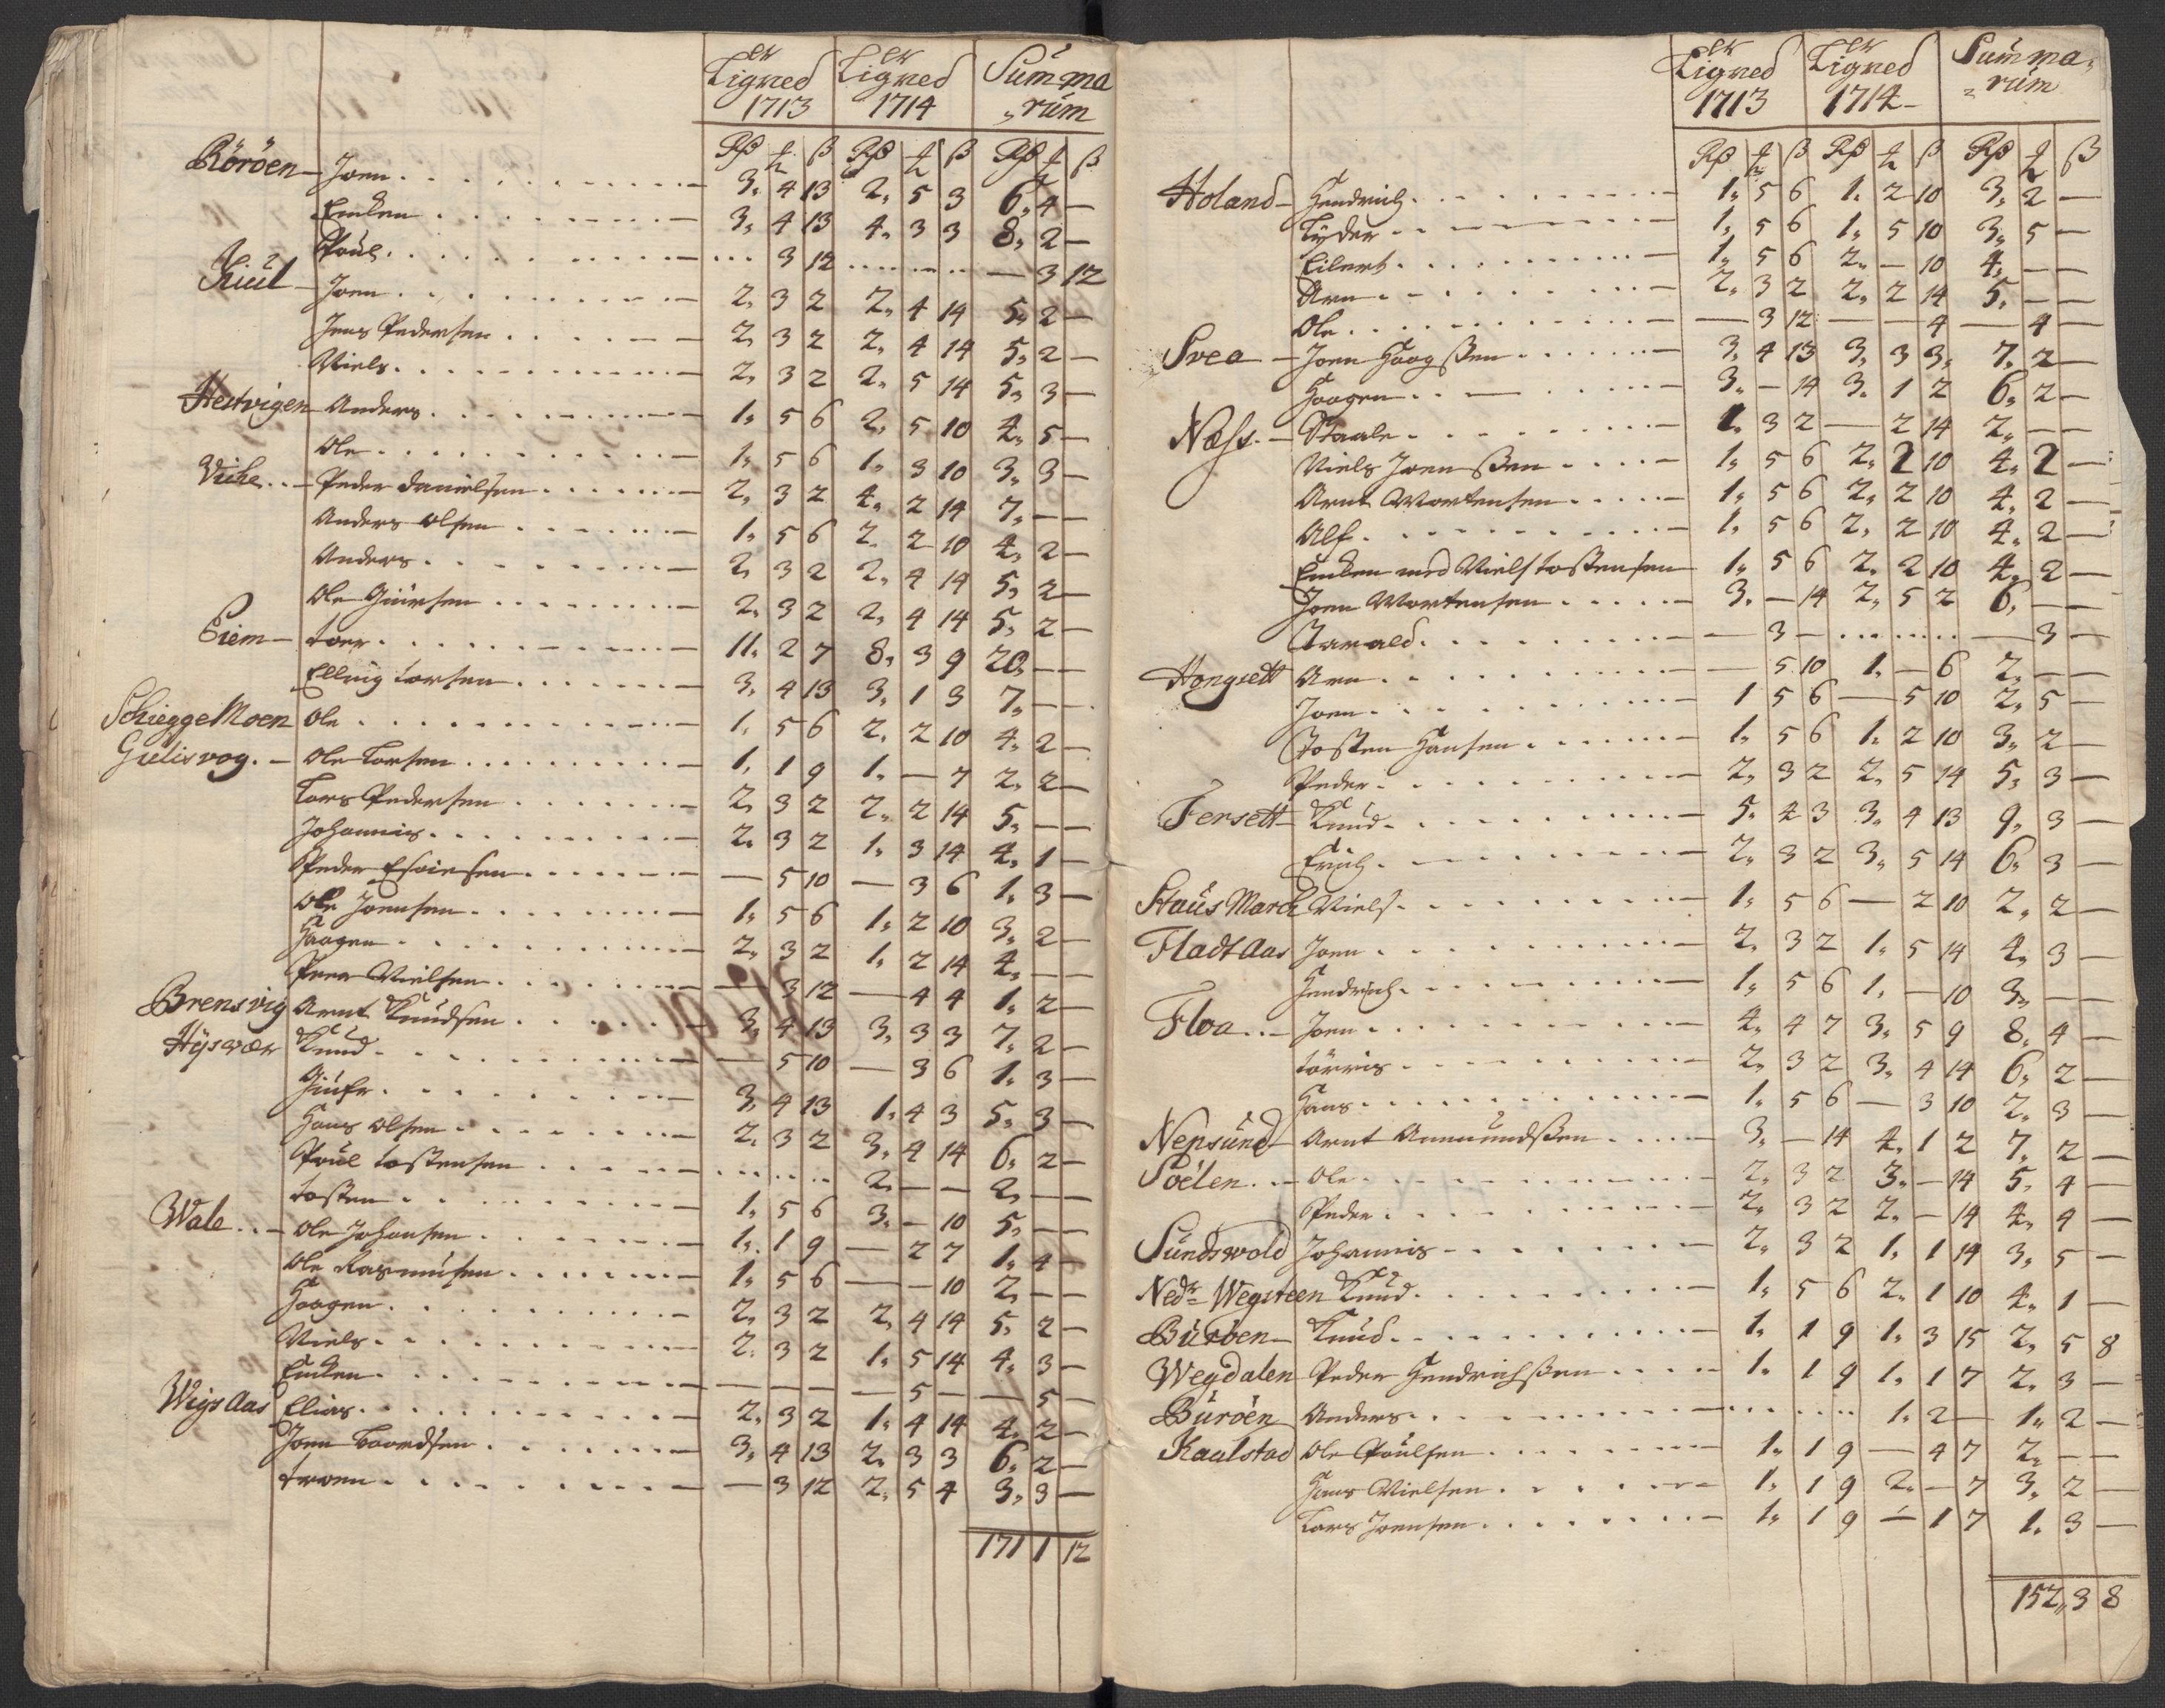 Er Ligned 1713 Er Ligned 1714 Summa„
„rum
Rd ß Rd ß Rd ß
Röröen – Joen 3„ 4 13 2„ 5 3 6„ 4 –
Encken 3„ 4 13 4„ 3 3 8„ 2 –
Poul 3 12 – 3 12
Kiul – Joen 2„ 3 2 2„ 4 14 5„ 2 –
Jens Pedersen 2„ 3 2 2„ 4 14 5„ 2 –
Niels 2„ 3 2 2„ 5 14 5„ 3 –
Hestvigen Anders 1„ 5 6 2„ 5 10 4„ 5 –
Ole 1„ 5 6 1„ 3 10 3„ 3 –
Viche – Peder Danielsen 2„ 3 2 4„ 2 14 7„ – –
Anders Olsen 1„ 5 6 2„ 2 10 4„ 2 –
Anders 2„ 3 2 2„ 4 14 5„ 2 –
Ole Giürsen 2„ 3 2 2„ 4 14 5„ 2 –
Eiem – Toer 11„ 2 7 8„ 3 9 20„ – –
Elling Torsen 3„ 4 13 3„ 1 3 7„ – –
SchieggeMoen Ole 1„ 5 6 2„ 2 10 4„ 2 –
Gielisvog. – Ole Larsen 1„ 1 9 1„ – 7 2„ 2 –
Lars Pedersen 2„ 3 2 2„ 2 14 5„ – –
Johannis 2„ 3 2 1„ 3 14 4„ 1 –
Peder – 5 10 – 3 6 1„ 3 –
Ole Joensen 1„ 5 6 1„ 2 10 3„ 2 –
Haagen 2„ 3 2 1„ 2 14 4„ – –
Peer Nielsen – 3 12 – 4 4 1„ 2 –
Brensvig Arnt Knudsen 3„ 4 13 3„ 3 3 7„ 2 –
Hÿsvær Knud – 5 10 – 3 6 1„ 3 –
3„ 4 13 1„ 4 3 5„ 3 –
Hans Olsen 2„ 3 2 3„ 4 14 6„ 2 –
Poul Tostensen 2„ – – 2„ – –
Tosten 1„ 5 6 3„ – 10 5„ – –
Wale – Ole Johansen 1„ 1 9 – 2 7 1„ 4 –
Ole Rasmusen 1„ 5 6 – – 10 2„ – –
Haagen 2„ 3 2 2„ 4 14 5„ 2 –
Niels 2„ 3 2 1„ 5 14 4„ 3 –
Encken – – – – 5 – – 5 –
Wigs Aas Elias 2„ 3 2 1„ 4 14 4„ 2 –
Joen Baardsen 3„ 4 13 2„ 3 3 6„ 2 –
Troen – 3 12 2„ 5 4 3„ 3 –
171 1 12
Er Ligned 1713 Er Ligned 1714 Summa„
„rum
Rd ß Rd ß Rd ß
Holand – Hendrich 1„ 5 6 1„ 2 10 3„ 2 –
Lÿder 1„ 5 6 1„ 5 10 3„ 5 –
Eilert 1„ 5 6 2„ – 10 4„ – –
Arn 2„ 3 2 2„ 2 14 5„ – –
Ole – 3 12 – – 4 – 4 –
Svea – Joen Haagssen 3„ 4 13 3„ 3 3„ 7„ 2 –
Haagen 3„ – 14 3„ 1 2 6„ 2 –
Næss. – Staale 1„ 3 2 – 2 14 2„ – –
Niels Joenssen 1„ 5 6 2„ 2 10 4„ 2 –
Arnt Mortensen 1„ 5 6 2„ 2 10 4„ 2 –
Alf 1„ 5 6 2„ 2 10 4„ 2 –
Encken med Niels Tostensen 1„ 5 6 2„ 2 10 4„ 2 –
Joen Mortensen 3„ – 14 2„ 5 2 6„ – –
Tarald – 3 – – 3 –
Hongsett Arn – 5 10 1„ – 6 2„ – –
Joen 1 5 6 – 5 10 2„ 5 –
Tosten Hansen 1„ 5 6 1„ 2 10 3„ 2 –
Peder 2„ 3 2 2„ 5 14 5„ 3 –
Fersett – Knud 5„ 4 3 3„ 4 13 9„ 3 –
Erich 2„ 3 2 3„ 5 14 6„ 3 –
Staüs March Niels 1„ 5 6 – 2 10 2„ 2 –
Fladt Aas Joen 2„ 3 2 1„ 5 14 4„ 3 –
Hendrich 1„ 5 6 1„ – 10 3„ – –
Floa – Joen 4„ 4 7 3„ 5 9 8„ 4 –
Törris 2„ 3 2 3„ 4 14 6„ 2 –
Hans 1„ 5 6 – 3 10 2„ 3 –
Nepsund – Arnt Amundssen 3„ – 14 4„ 1 2 7„ 2 –
Soelen – Ole 2„ 3 2 3„ – 14 5„ 4 –
Peder 2„ 3 2 2„ – 14 4„ 4 –
Sundswold Johannis 2„ 3 2 1„ 1 14 3„ 5 –
Nedr Wegsteen Knud 1„ 5 6 2„ 1 10 4„ 1 –
Büröen – Knud 1„ 1 9 1„ 3 15 2„ 5 8
Wegdalen Peder Hendrichssen 1„ 1 9 1„ 1 7 2„ 3 –
Büröen Anders 1„ 2 – 1„ 2 –
Kaalstad Ole Poulsen 1„ 1 9 – 4 7 2„ – –
Hans Nielsen 1„ 1 9 2„ – 7 3„ 2 –
Lars Joensen 1„ 1 9 – 1 7 1„ 3 –
152„ 3 8